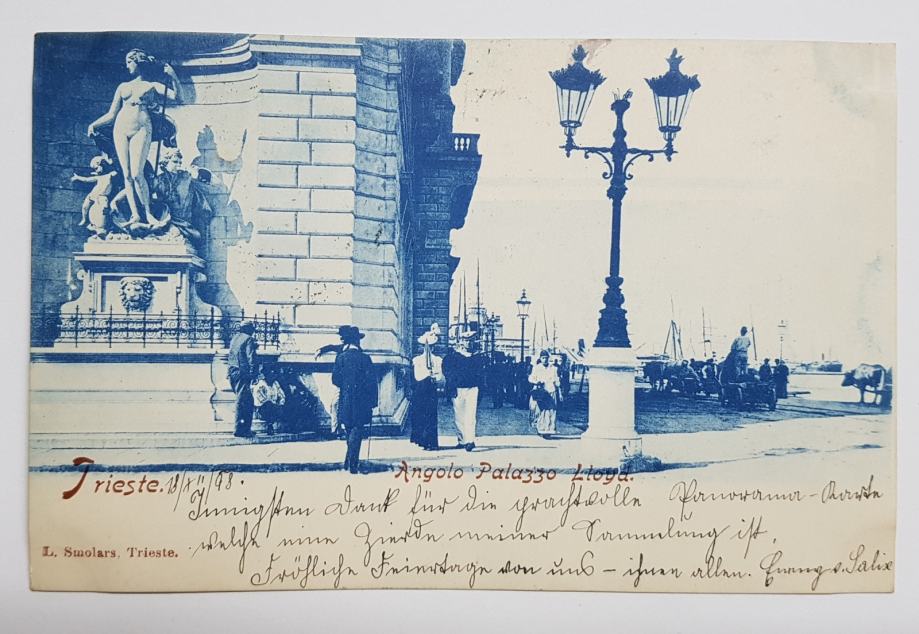 Trieste. 18/XII 98.
Angolo Palazzo Lloyd.
Innigsten Dank für die prachtvolle Panorama-Karte
welche eine Zierde meiner Sammlung ist.
L. Smolars, Trieste.
Fröhliche Feiertage von uns - ihnen allen. v. Salix